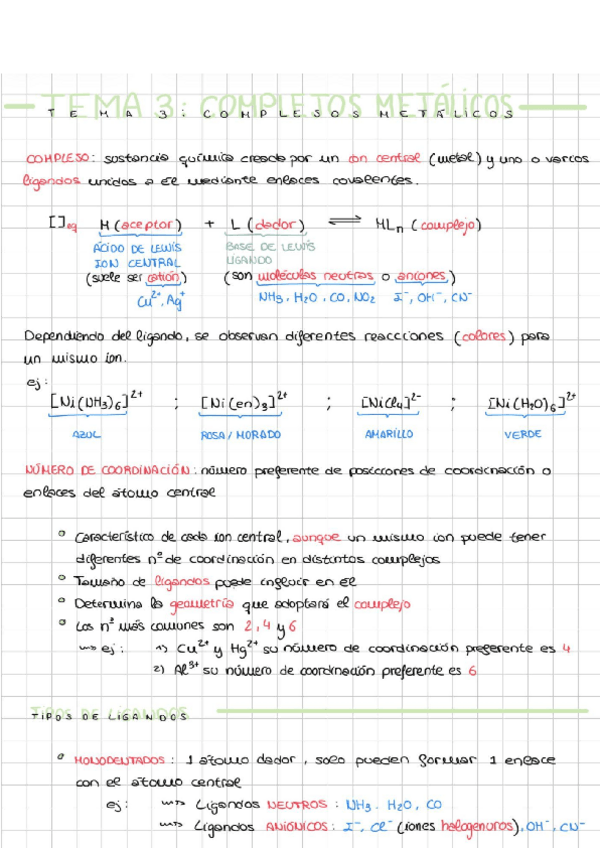 TEMA 3: COMPLEJOS METÁLICOS
TEMA 3: COMPLESOS METÁLICOS
COMPLESO: sustancia química creada por un ion central (metal) y uno o varios
ligandos unidos a él mediante enlaces covalentes.
[ ]eq M (aceptor) + L (dador) ⇌ MLn (complejo)
ÁCIDO DE LEWIS BASE DE LEWIS
ION CENTRAL LIGANDO
(suele ser catión) (son moléculas neutras o aniones)
Cu²⁺, Ag⁺ NH₃, H₂O, CO, NO₂ I⁻, OH⁻, CN⁻
Dependiendo del ligando, se observan diferentes reaccciones (colores) para
un mismo ion.
ej:
[Ni(NH3)6]²⁺ ; [Ni(en)3]²⁺ ; [NiCl4]²⁻ ; [Ni(H2O)6]²⁺
AZUL ROSA/MORADO AMARILLO VERDE
NÚMERO DE COORDINACIÓN: número preferente de posiciones de coordinación o
enlaces del átomo central
° Característico de cada ion central, aunque un mismo ion puede tener
diferentes nº de coordinación en distintos complejos
° Tamaño de ligandos puede influir en él
° Determina la geometría que adoptará el complejo
° Los nº más comunes son 2, 4 y 6
⇝ ej: 1) Cu²⁺ y Hg²⁺ su número de coordinación preferente es 4
2) Al³⁺ su número de coordinación preferente es 6
TIPOS DE LIGANDOS
° MONODENTADOS: 1 átomo dador, solo pueden formar 1 enlace
con el átomo central
ej: ⇝ Ligandos NEUTROS: NH₃, H₂O, CO
⇝ Ligandos ANIÓNICOS: I⁻, Cl⁻ (iones halogenuros), OH⁻, CN⁻